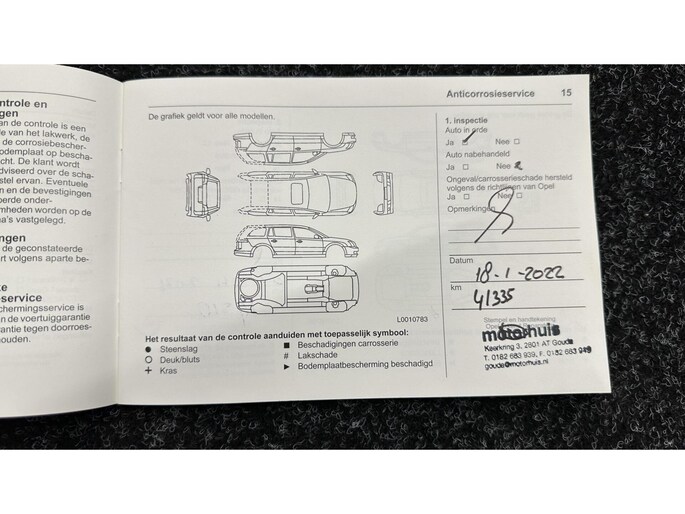 ntrole en
gen
an de controle is een
le van het lakwerk, de
de corrosiebescher-
odemplaat op bescha-
cht. De klant wordt
dviseerd over de scha-
stel ervan. Eventuele
n en de bevestigingen
perde onder-
mheden worden op de
a's vastgelegd.
ngen
de geconstateerde
rt volgens aparte be-
ke
eservice
chermingsservice is
n de voertuiggarantie
rantie tegen doorroes-
houden.
Anticorrosieservice 15
De grafiek geldt voor alle modellen.
L0010783
Het resultaat van de controle aanduiden met toepasselijk symbool:
● Steenslag
○ Deuk/bluts
+ Kras
■ Beschadigingen carrosserie
# Lakschade
► Bodemplaatbescherming beschadigd
1. inspectie
Auto in orde
Ja □ Nee □
Auto nabehandeld
Ja □ Nee
Ongeval/carrosserieschade hersteld
volgens de richtlijnen van Opel
Ja □ Nee □
Opmerkingen
Datum
18-1-2022
km
41335
Stempel en handtekening
motorhuis
Keerkring 3, 2801 AT Gouda
T. 0182 683 939, F. 0182 683 949
gouda@motorhuis.nl